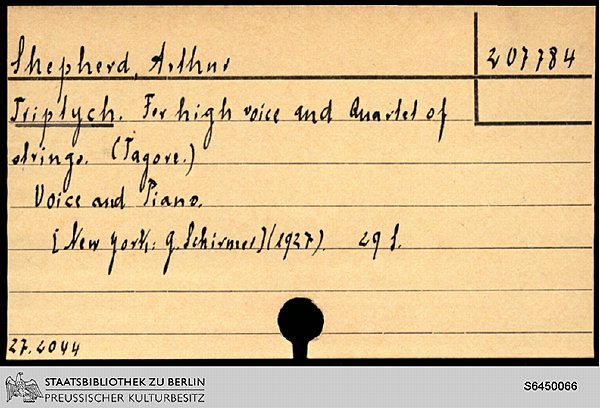 Shepherd, Arthur
207784
Triptych. For high voice and Quartet of
strings. (Tagore.)
Voice and Piano.
[New York: G. Schirmer] (1927). 29 S.
27.2044
STAATSBIBLIOTHEK ZU BERLIN
PREUSSISCHER KULTURBESITZ
S6450066